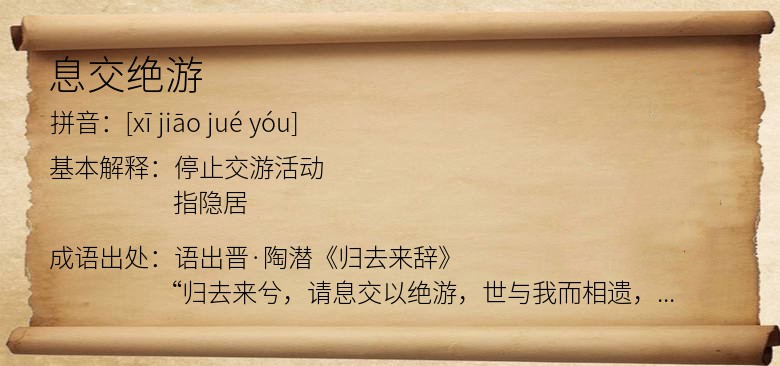 息交绝游
拼音：[xī jiāo jué yóu]
基本解释：停止交游活动
指隐居
成语出处：语出晋·陶潜《归去来辞》
“归去来兮，请息交以绝游，世与我而相遗，...